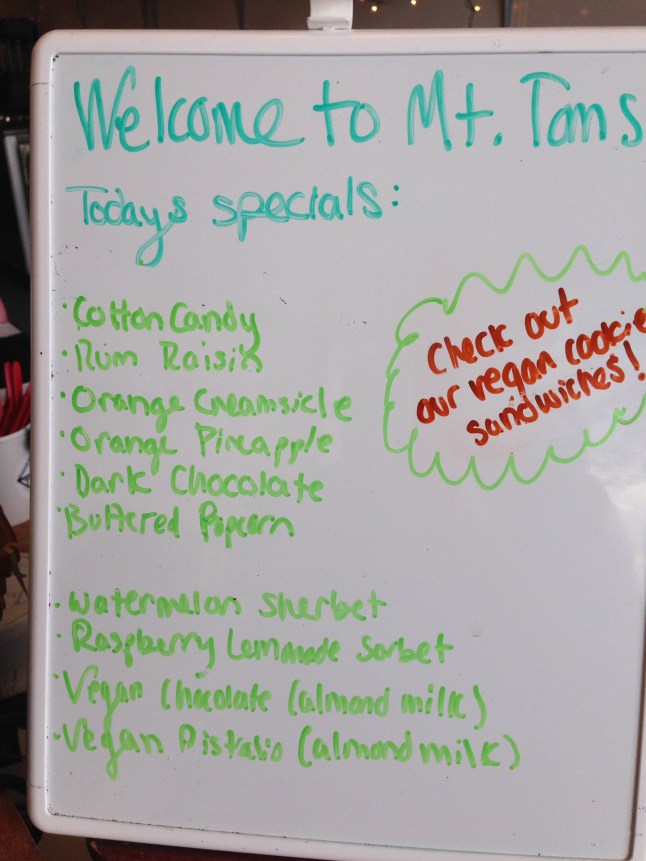 Welcome to Mt. Toms
Todays specials:
· Cotton Candy
· Rum Raisin
· Orange Creamsicle
· Orange Pineapple
· Dark Chocolate
· Buttered Popcorn
Check out
our vegan cookie
sandwiches!
· Watermelon Sherbet
· Raspberry Lemonade Sorbet
· Vegan Chocolate (almond milk)
· Vegan Pistatio (almond milk)